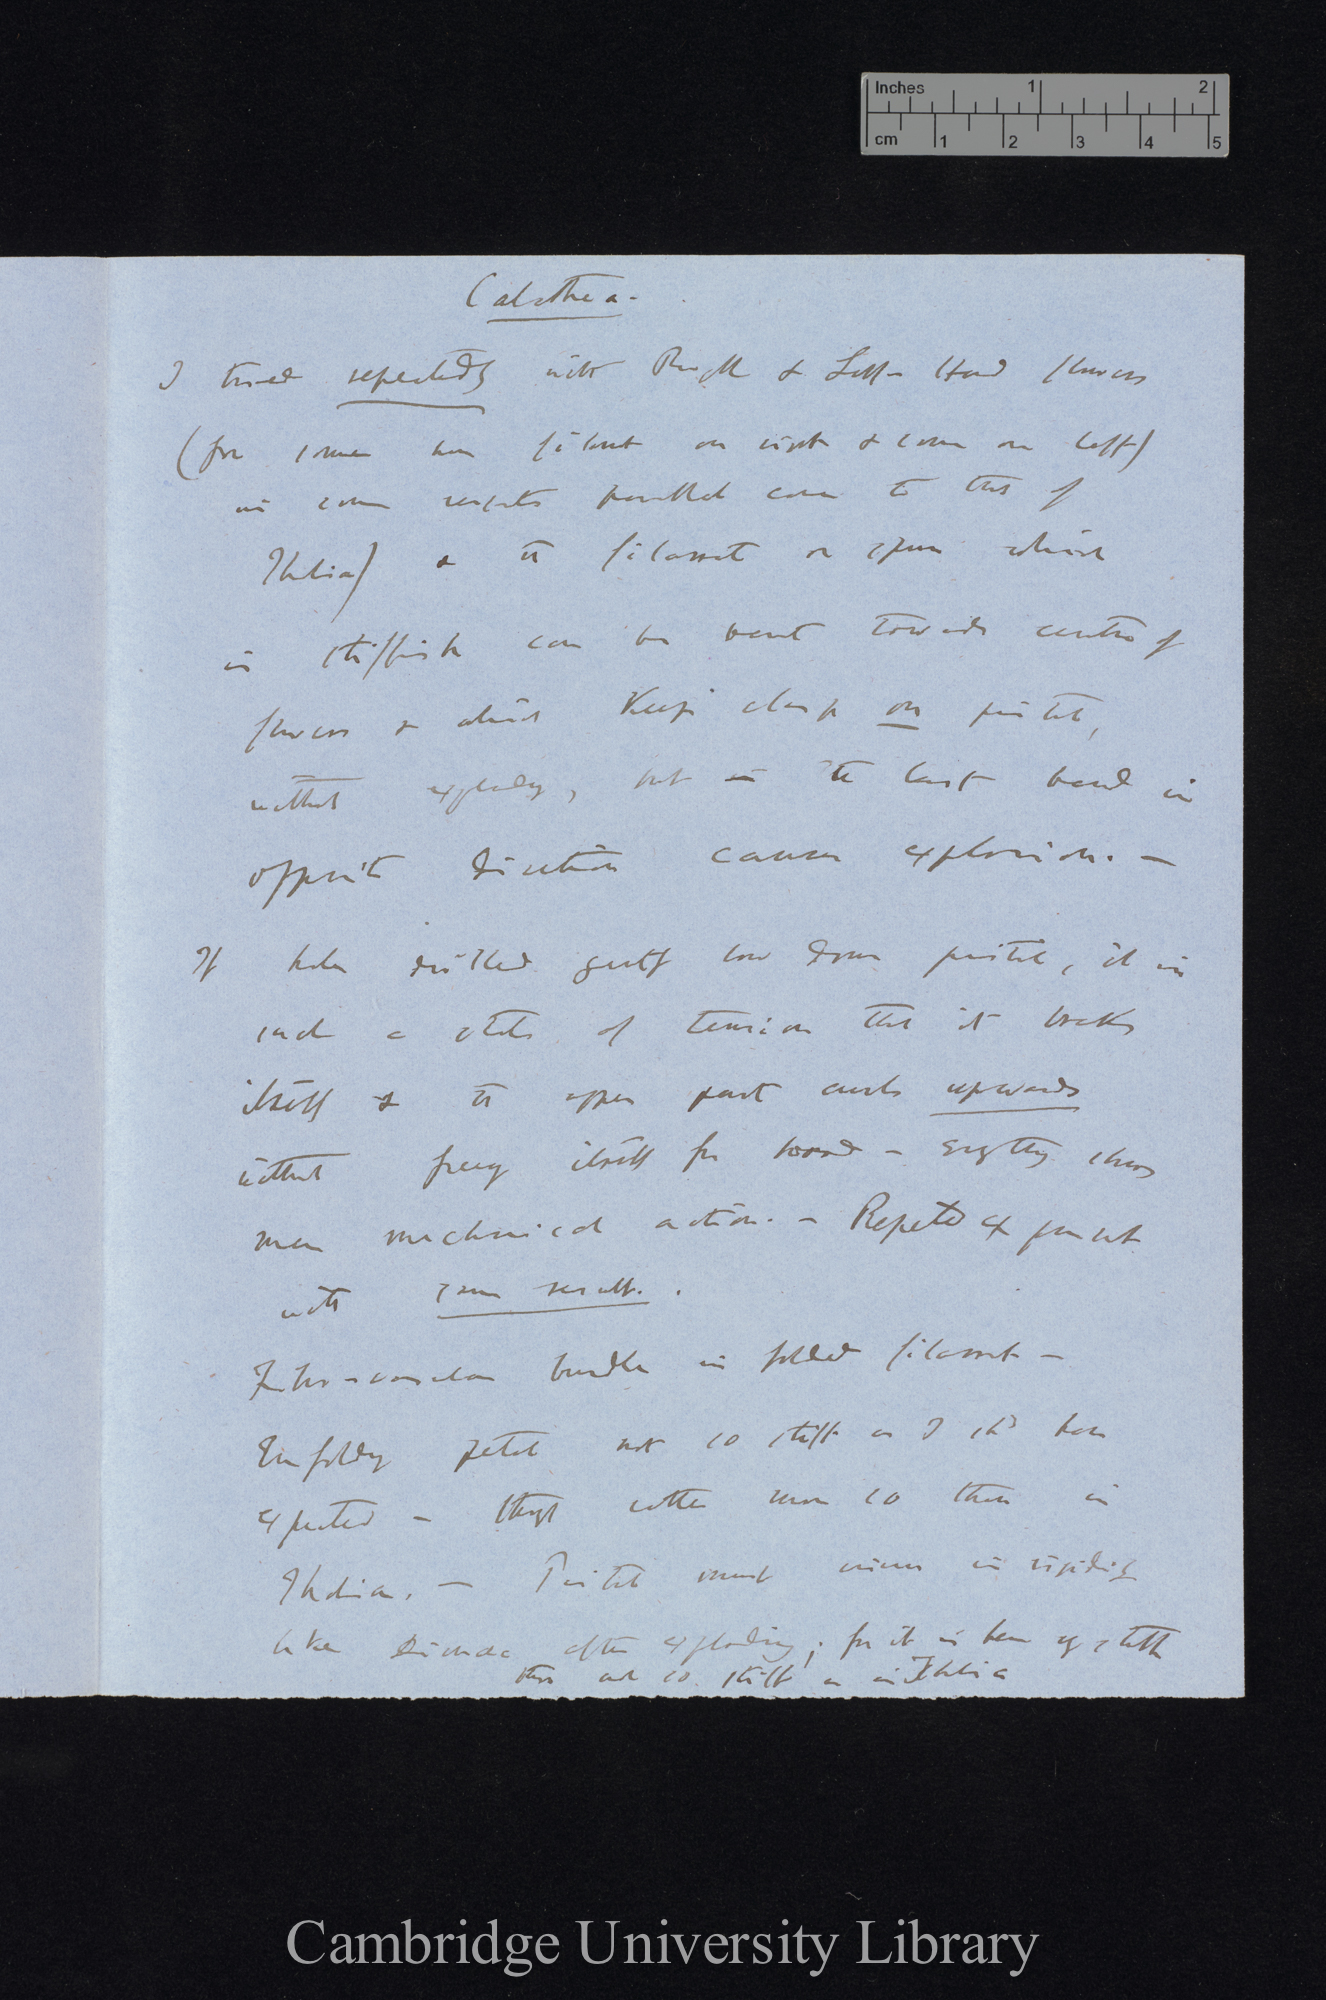 Inches 1 2
cm 1 2 3 4 5
Calathea.
I tried repeatedly with Right & Left Hand flowers
(for some have filament on right & some on left)
in some respects parallel case to that of
Thalia) & the filament or spur which
is stiffish can be bent towards centre of
flowers & which keeps clasp on pistil,
without exploding, but in the least bend in
opposite direction causes explosion. —
If hole drilled gently low down pistil, it is
such a state of tension that it breaks
itself & the upper part curls upwards
without freeing itself from hood — Everything shows
mere mechanical action. — Repeated experiment
with same result.
Fibro-vascular bundle in folded filament —
Enfolding petal not so stiff as I shd have
expected — though rather more so than in
Thalia. — Pistil must increase in rigidity
like Dionaea after exploding; for it is here
than not so stiff as in Thalia
Cambridge University Library